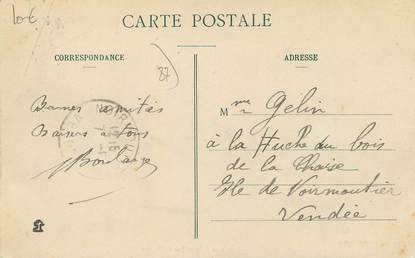 CARTE POSTALE
CORRESPONDANCE
ADRESSE
Bonnes amitiés
Baisers à tous
Mme Gélin
à la Huche du bois
de la Chaise
Ile de Noirmoutier
Vendée